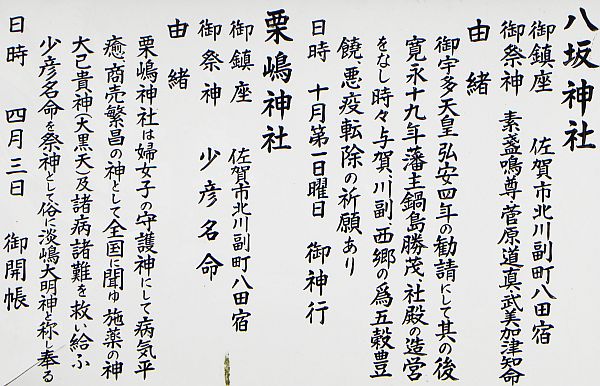 八坂神社
御鎮座　佐賀市北川副町八田宿
御祭神　素盞鳴尊・菅原道真・武美加津知命
由緒
御宇多天皇弘安四年の勧請にして其の後
寛永十九年藩主鍋島勝茂・社殿の造営
をなし時々与賀、川副、西郷の爲五穀豊
饒悪疫転除の祈願あり
日時　十月第一日曜日　御神行
栗嶋神社
御鎮座　佐賀市北川副町八田宿
御祭神　少彦名命
由緒
栗嶋神社は婦女子の守護神にして病気平
癒、商売繁昌の神として全国に聞ゆ施薬の神
大己貴神(大黒天)及諸病諸難を救い給ふ
少彦名命を祭神として俗に淡嶋大明神と称し奉る
日時　四月三日　御開帳